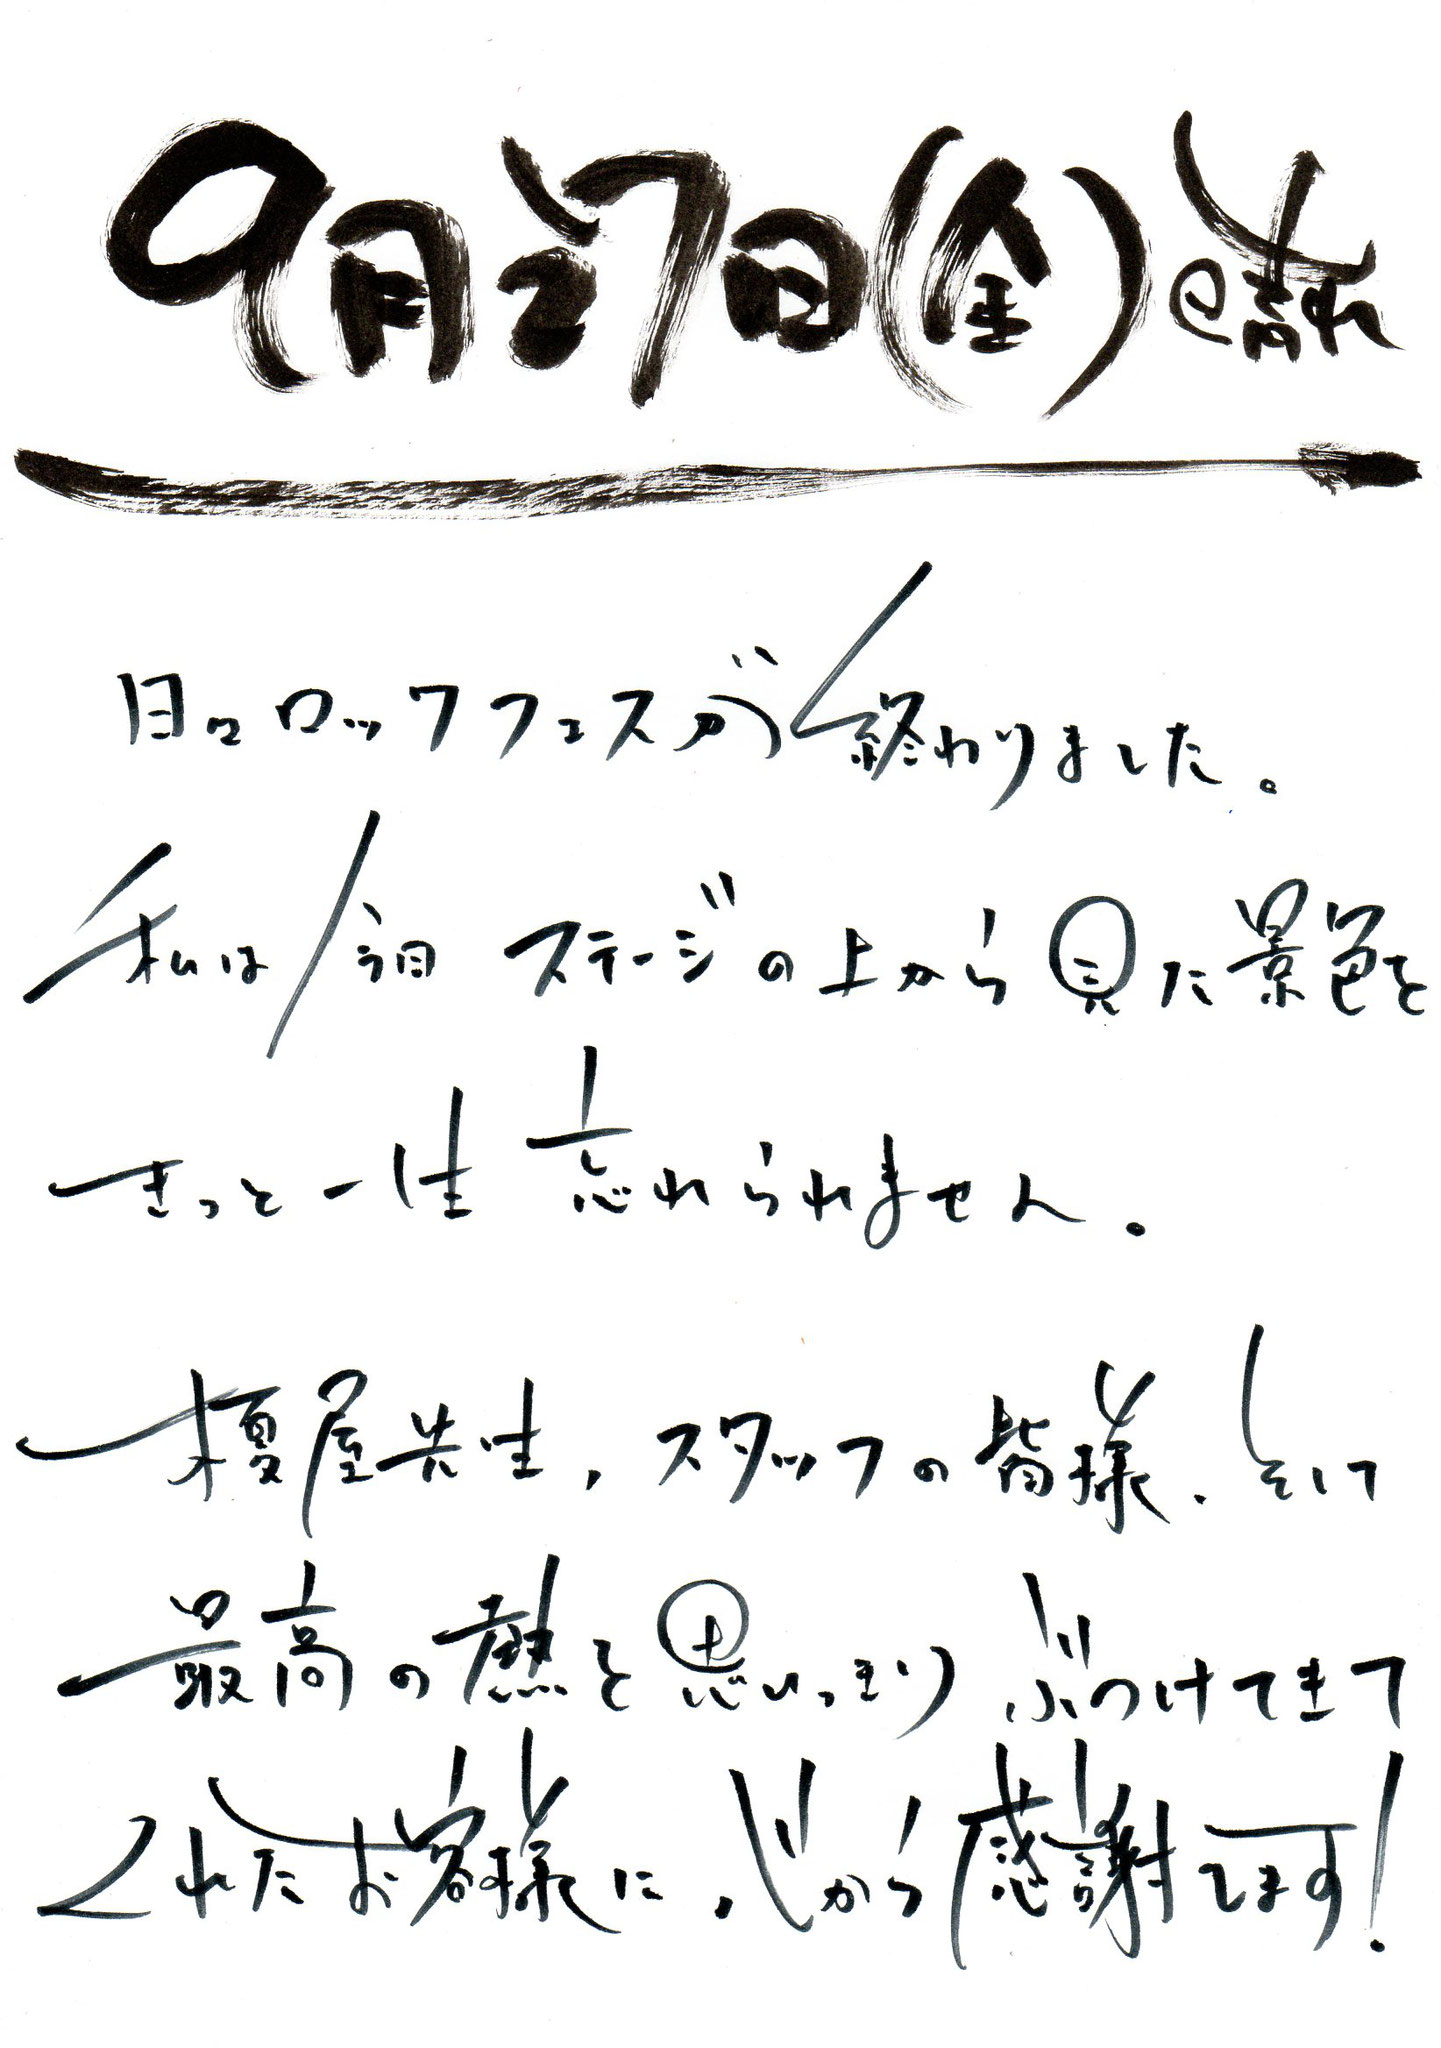 9月27日(金)晴れ
日々ロックフェスが終わりました。
私は今日 ステージの上から見た景色を
きっと一生 忘れられません。
榎屋先生、スタッフの皆様、そして
最高の熱を思いっきり ぶつけてきて
くれたお客様に、心から感謝してます!